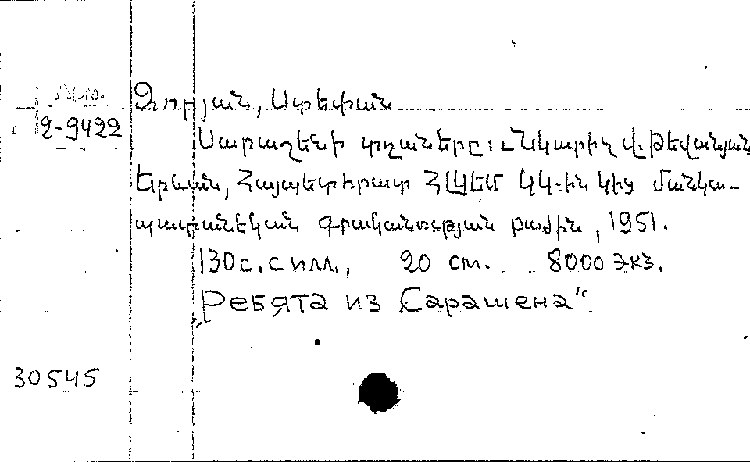 Զորյան, Ստեփան
2-9422
Սարաշենի տղաները: Նկարիչ Վ. Թեվանյան
Երևան, Հայպետհրատ ՀԼԿԵՄ ԿԿ-ին կից մանկա-
պատանեկան գրականության բաժին, 1951.
130 с. с илл., 20 cm. 8000 экз.
„Ребята из Сарашена“
30545